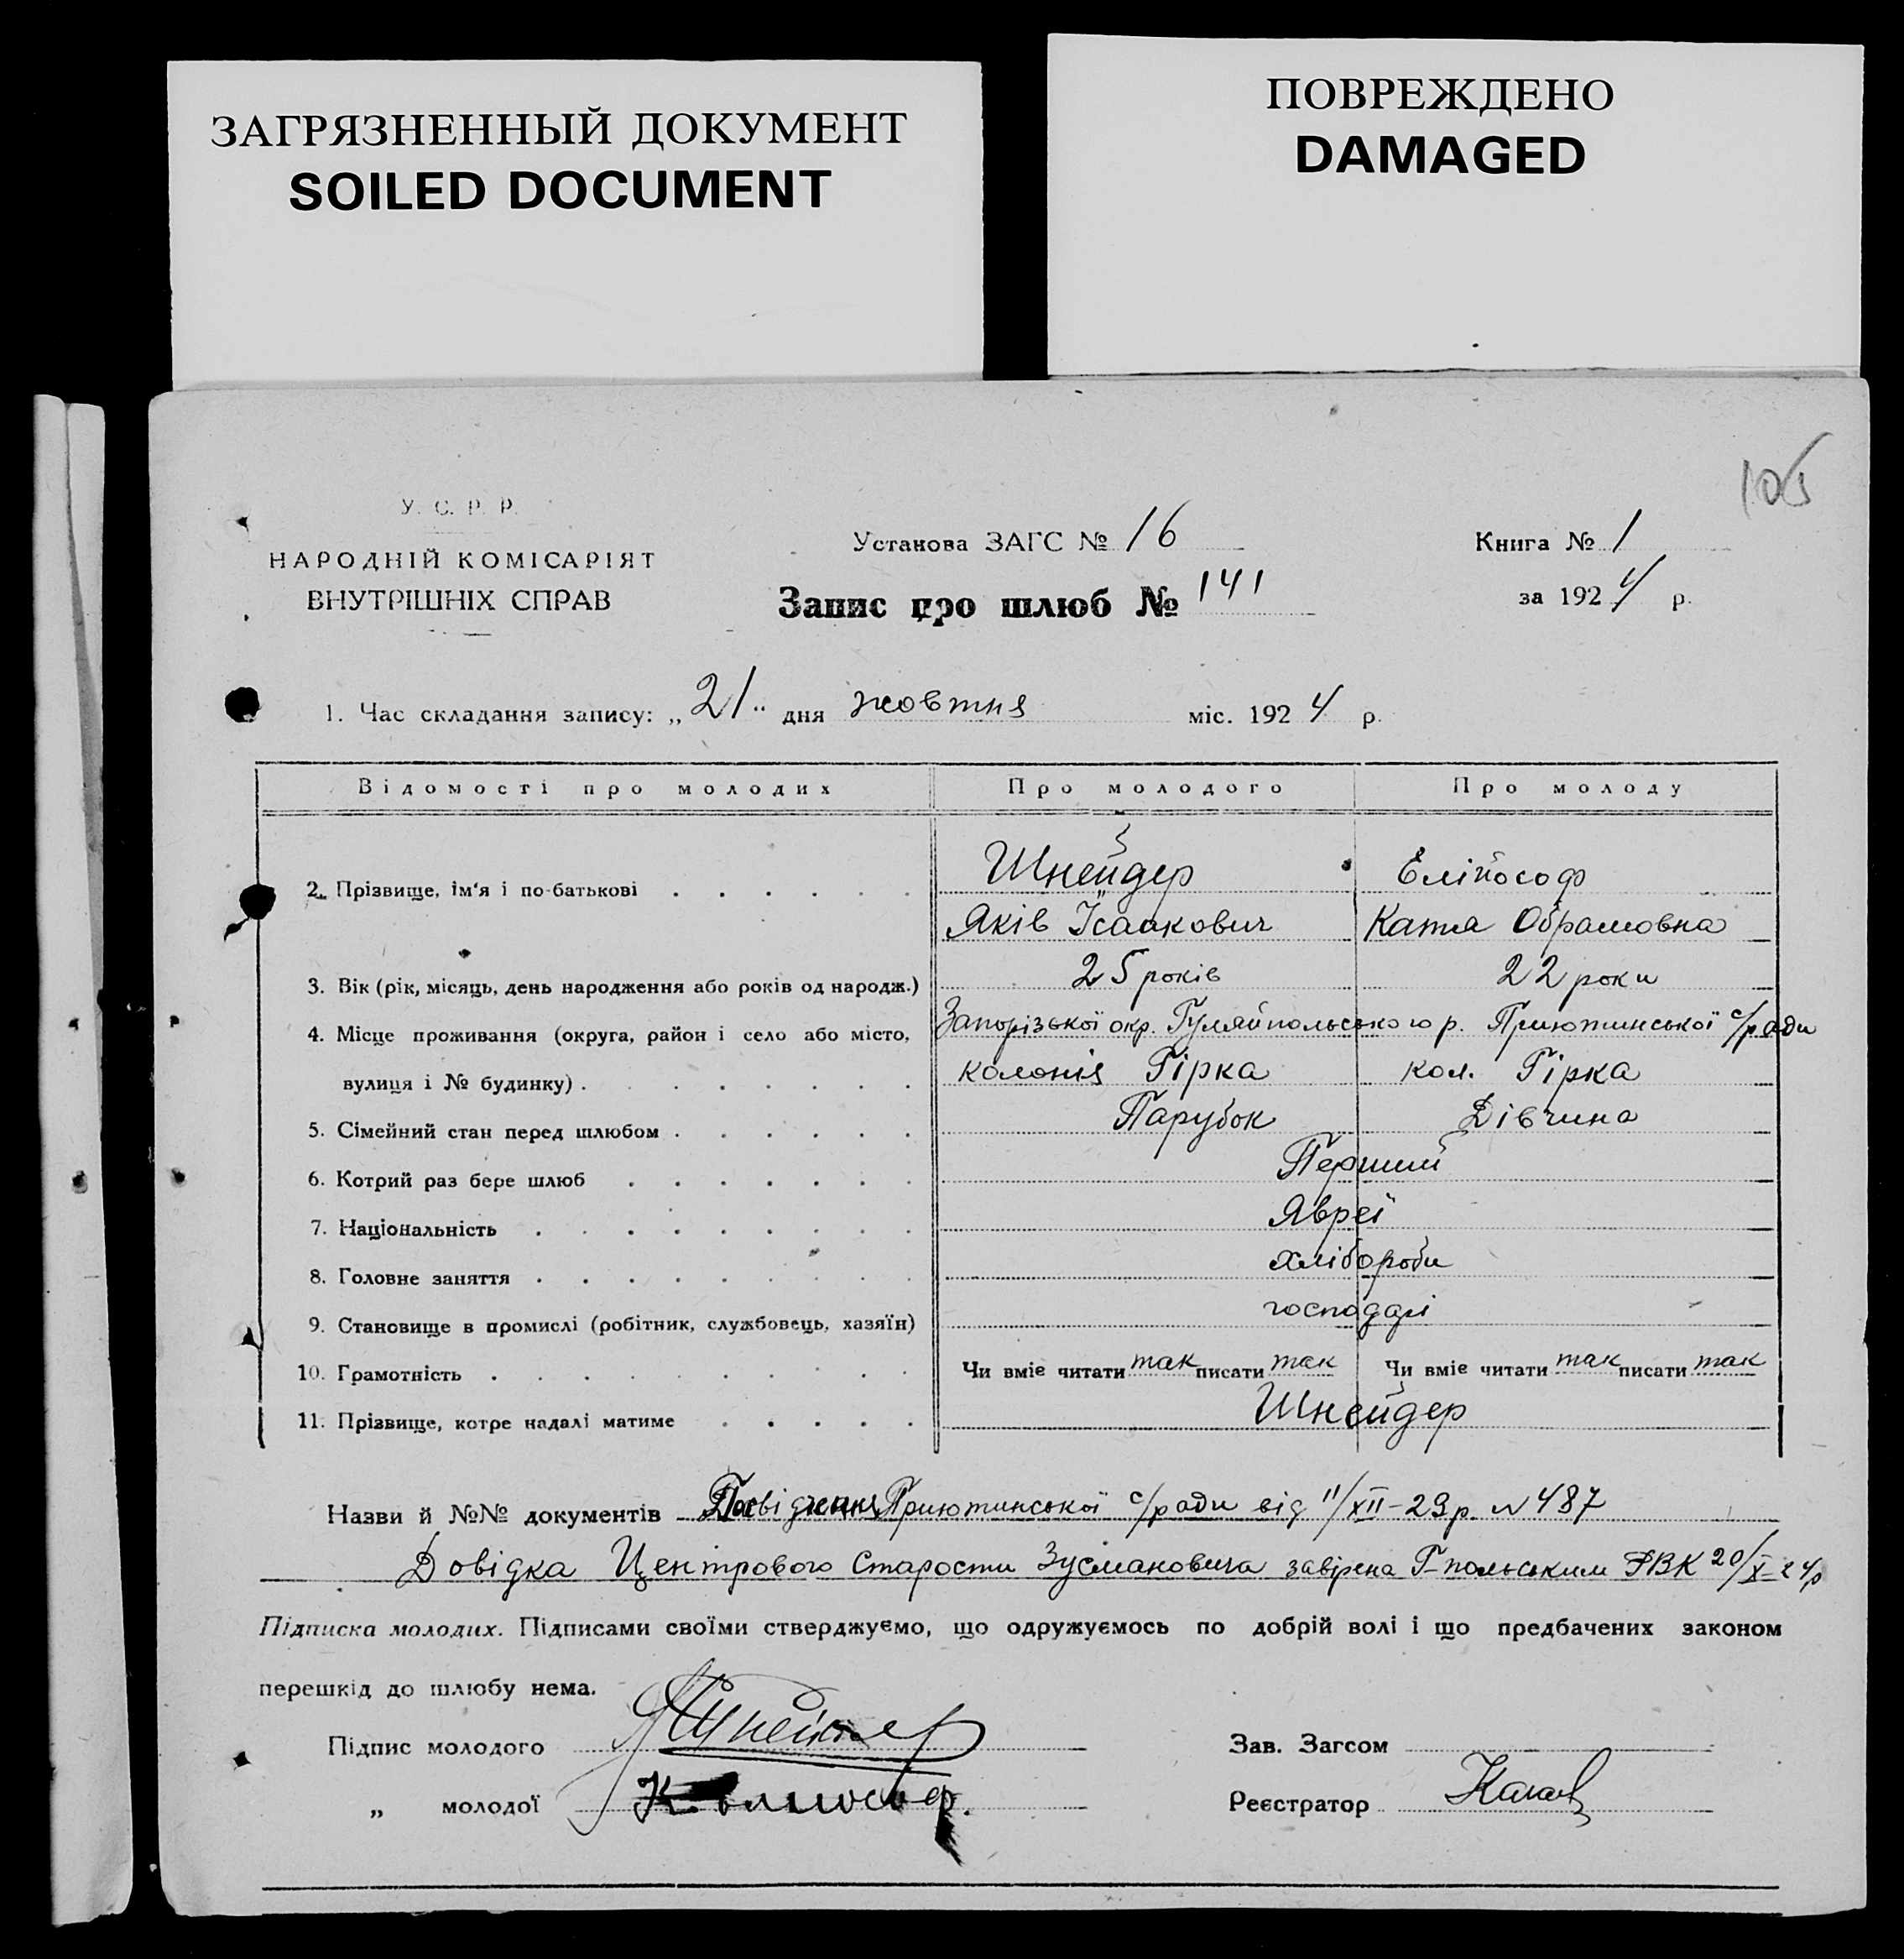 ЗАГРЯЗНЕННЫЙ ДОКУМЕНТ
SOILED DOCUMENT
ПОВРЕЖДЕНО
DAMAGED
105
У. С. Р. Р.
НАРОДНІЙ КОМІСАРІЯТ
ВНУТРІШНІХ СПРАВ
Установа ЗАГС № 16
Запис про шлюб № 141
Книга № 1
за 1924 р.
1. Час складання запису: „21" дня жовтня міс. 1924 р.
Відомості про молодих Про молодого Про молоду
Шнейдер Еліпософ
2. Прізвище, ім'я і по-батькові Яків Ісаакович Катя Обрамовна
3. Вік (рік, місяць, день народження або років од народж.) 25 років 22 роки
4. Місце проживання (округа, район і село або місто, Запорізької окр. Гуляйпольського р. Приютинської с/ради
вулиця і № будинку) колонія Гірка кол. Гірка
5. Сімейний стан перед шлюбом Парубок Дівчина
6. Котрий раз бере шлюб Перший
7. Національність Явреї
8. Головне заняття хлібороби
9. Становище в промислі (робітник, службовець, хазяїн)
10. Грамотність Чи вміє читати так писати так Чи вміє читати так писати так
11. Прізвище, котре надалі матиме Шнейдер
Назви й №№ документів Посвідчення Приютинської с/ради від 11/XII-23р. N 487
Довідка Центрового Старости Зусмановича завірена Г-польським РВК 20/X-24р
Підписка молодих. Підписами своїми стверджуємо, що одружуємось по добрій волі і що предбачених законом
перешкід до шлюбу нема.
Підпис молодого Шнейдер
„ молодої
Зав. Загсом
Реєстратор